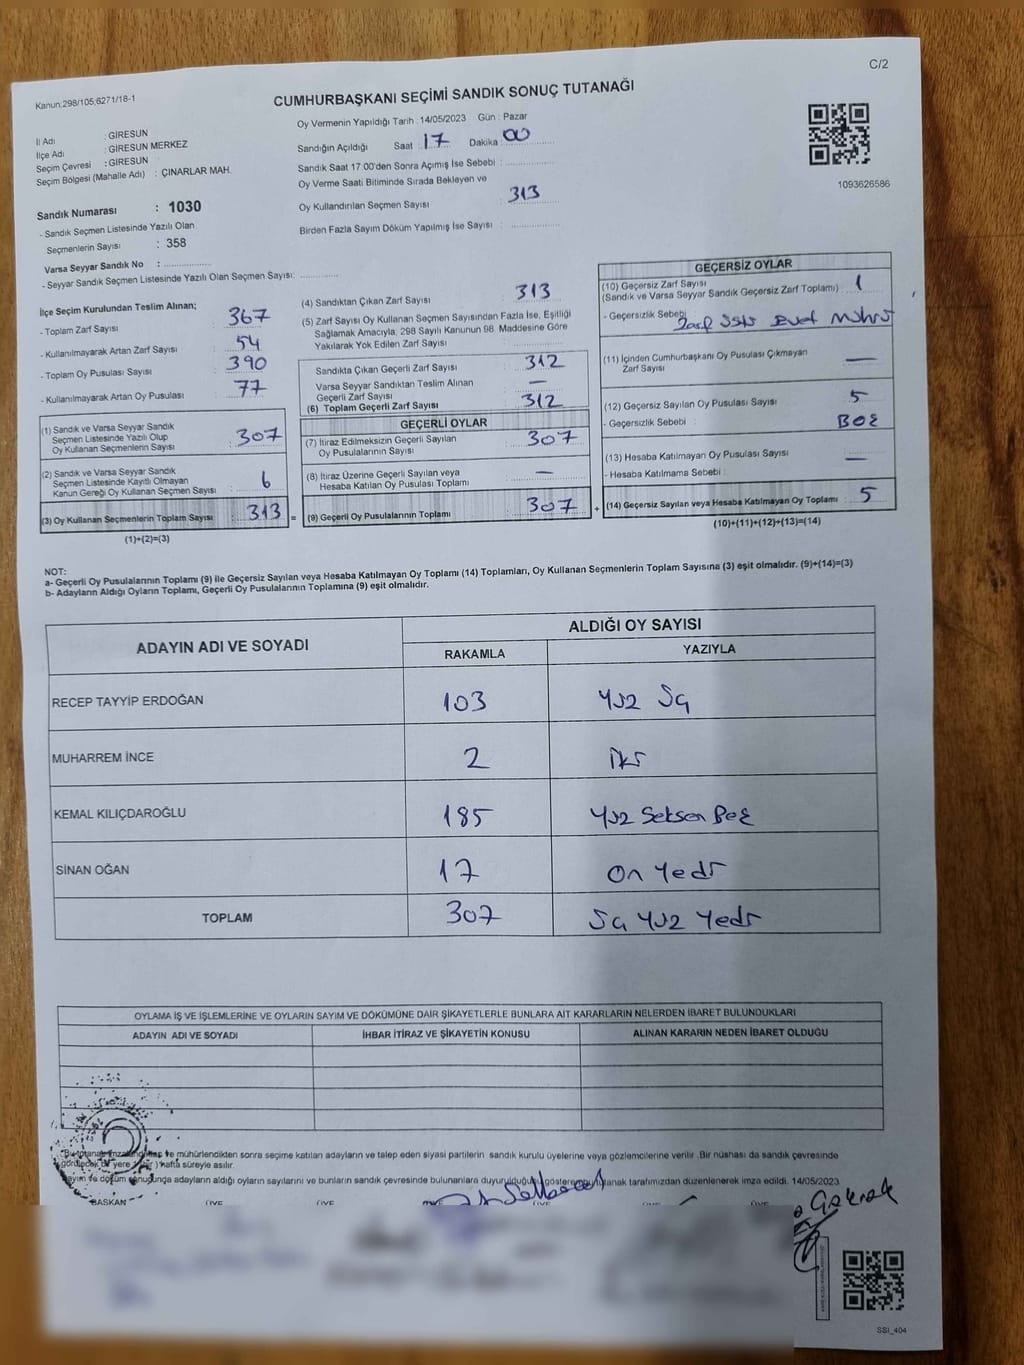 C/2
Kanun:298/105;6271/18-1
CUMHURBAŞKANI SEÇİMİ SANDIK SONUÇ TUTANAĞI
İl Adı : GİRESUN
İlçe Adı : GİRESUN MERKEZ
Seçim Çevresi : GİRESUN
Seçim Bölgesi (Mahalle Adı) : ÇINARLAR MAH.
Oy Vermenin Yapıldığı Tarih : 14/05/2023 Gün : Pazar
Sandığın Açıldığı Saat : 17 Dakika : 00
Sandık Saat 17:00'den Sonra Açımış İse Sebebi :
Oy Verme Saati Bitiminde Sırada Bekleyen ve
Oy Kullandırılan Seçmen Sayısı : 313
Birden Fazla Sayım Döküm Yapılmış İse Sayısı :
1093626586
Sandık Numarası : 1030
- Sandık Seçmen Listesinde Yazılı Olan
Seçmenlerin Sayısı : 358
Varsa Seyyar Sandık No :
- Seyyar Sandık Seçmen Listesinde Yazılı Olan Seçmen Sayısı:
İlçe Seçim Kurulundan Teslim Alınan;
- Toplam Zarf Sayısı : 367
- Kullanılmayarak Artan Zarf Sayısı : 54
- Toplam Oy Pusulası Sayısı : 390
- Kullanılmayarak Artan Oy Pusulası : 77
(1) Sandık ve Varsa Seyyar Sandık
Seçmen Listesinde Yazılı Olup
Oy Kullanan Seçmenlerin Sayısı : 307
(2) Sandık ve Varsa Seyyar Sandık
Seçmen Listesinde Kayıtlı Olmayan
Kanun Gereği Oy Kullanan Seçmen Sayısı : 6
(3) Oy Kullanan Seçmenlerin Toplam Sayısı : 313 =
(1)+(2)=(3)
(4) Sandıktan Çıkan Zarf Sayısı : 313
(5) Zarf Sayısı Oy Kullanan Seçmen Sayısından Fazla İse, Eşitliği
Sağlamak Amacıyla, 298 Sayılı Kanunun 98. Maddesine Göre
Yakılarak Yok Edilen Zarf Sayısı :
Sandıkta Çıkan Geçerli Zarf Sayısı : 312
Varsa Seyyar Sandıktan Teslim Alınan
Geçerli Zarf Sayısı : —
(6) Toplam Geçerli Zarf Sayısı : 312
GEÇERLİ OYLAR
(7) İtiraz Edilmeksizin Geçerli Sayılan
Oy Pusulalarının Sayısı : 307
(8) İtiraz Üzerine Geçerli Sayılan veya
Hesaba Katılan Oy Pusulası Toplamı : —
(9) Geçerli Oy Pusulalarının Toplamı : 307 +
GEÇERSİZ OYLAR
(10) Geçersiz Zarf Sayısı
(Sandık ve Varsa Seyyar Sandık Geçersiz Zarf Toplamı) : 1
- Geçersizlik Sebebi : Zarf üstü Evet Mührü
(11) İçinden Cumhurbaşkanı Oy Pusulası Çıkmayan
Zarf Sayısı : —
(12) Geçersiz Sayılan Oy Pusulası Sayısı : 5
- Geçersizlik Sebebi : BOŞ
(13) Hesaba Katılmayan Oy Pusulası Sayısı : —
- Hesaba Katılmama Sebebi :
(14) Geçersiz Sayılan veya Hesaba Katılmayan Oy Toplamı : 5
(10)+(11)+(12)+(13)=(14)
NOT:
a- Geçerli Oy Pusulalarının Toplamı (9) ile Geçersiz Sayılan veya Hesaba Katılmayan Oy Toplamı (14) Toplamları, Oy Kullanan Seçmenlerin Toplam Sayısına (3) eşit olmalıdır. (9)+(14)=(3)
b- Adayların Aldığı Oyların Toplamı, Geçerli Oy Pusulalarının Toplamına (9) eşit olmalıdır.
ADAYIN ADI VE SOYADI
ALDIĞI OY SAYISI
RAKAMLA YAZIYLA
RECEP TAYYİP ERDOĞAN 103 Yüz Üç
MUHARREM İNCE 2 İki
KEMAL KILIÇDAROĞLU 185 Yüz Seksen Beş
SİNAN OĞAN 17 On Yedi
TOPLAM 307 Üç Yüz Yedi
OYLAMA İŞ VE İŞLEMLERİNE VE OYLARIN SAYIM VE DÖKÜMÜNE DAİR ŞİKAYETLERLE BUNLARA AİT KARARLARIN NELERDEN İBARET BULUNDUKLARI
ADAYIN ADI VE SOYADI İHBAR İTİRAZ VE ŞİKAYETİN KONUSU ALINAN KARARIN NEDEN İBARET OLDUĞU
ve mühürlendikten sonra seçime katılan adayların ve talep eden siyasi partilerin sandık kurulu üyelerine veya gözlemcilerine verilir .Bir nüshası da sandık çevresinde
görülecek bir yere hafta süreyle asılır.
Sayım ve döküm sonuçunda adayların aldığı oyların sayılarını ve bunların sandık çevresinde bulunanlara duyurulduğunu gösteren tutanak tarafımızdan düzenlenerek imza edildi. 14/05/2023
BAŞKAN ÜYE ÜYE ÜYE ÜYE
SSI_404